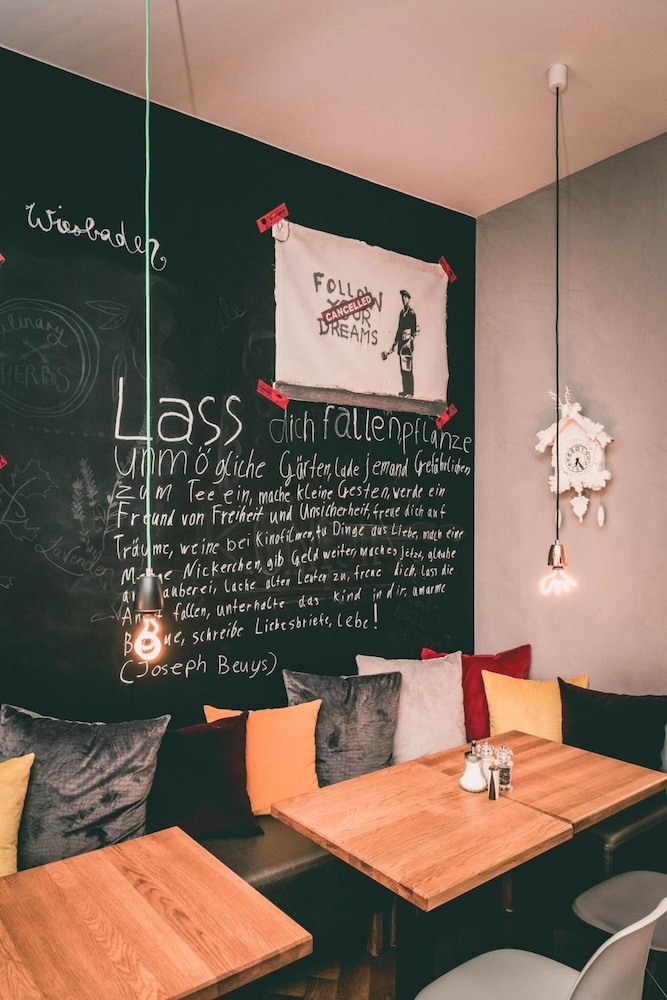 Wiesbaden
FOLLOW
YOUR
CANCELLED
DREAMS
Culinary
HERBS
Lass dich fallen, pflanze
unmögliche Gärten, lade jemand Gefährlichen
zum Tee ein, mache kleine Gesten, werde ein
Freund von Freiheit und Unsicherheit, freue dich auf
Träume, weine bei Kinofilmen, tu Dinge aus Liebe, mach eine
Nickerchen, gib Geld weiter, mach es jetzt, glaube
lache alten Leuten zu, freue dich, lass die
fallen, unterhalte das kind in dir, umarme
schreibe Liebesbriefe, Lebe!
(Joseph Beuys)
Lavender